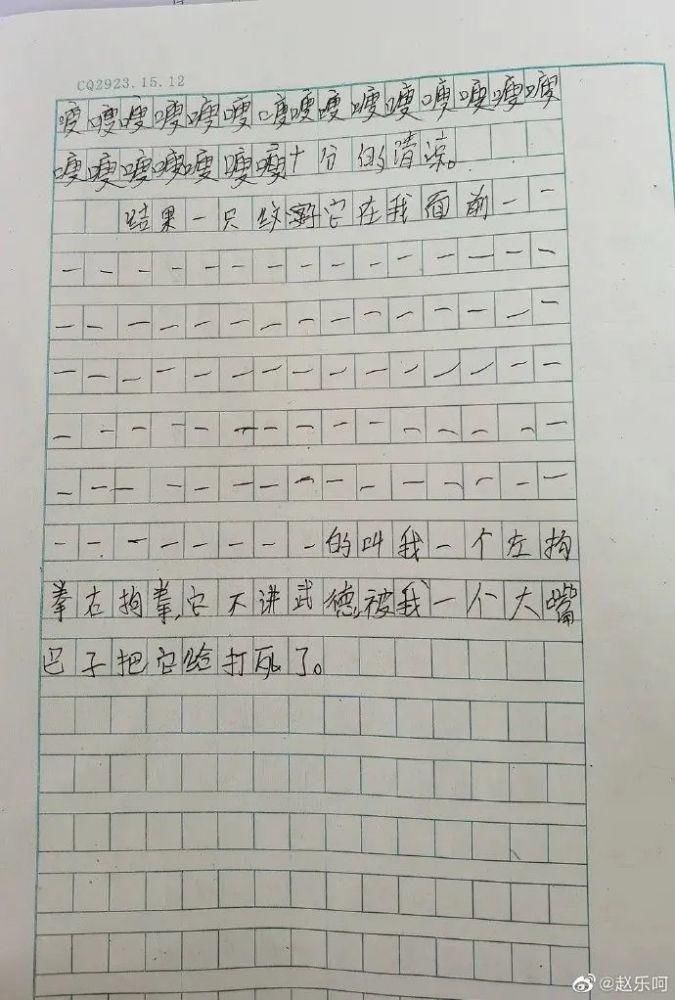 CQ2923.15.12
嗖嗖嗖嗖嗖嗖嗖嗖嗖嗖嗖嗖嗖嗖嗖
嗖嗖嗖嗖嗖嗖嗖十分的清凉。
结果一只纹子它在我面前一一
一一一一一一一一一一一一一一一
一一一一一一一一一一一一一一一
一一一一一一一一一一一一一一一
一一一一一一一一一一一一一一一
一一一一一一一一一一一一一一一
一一一一一一一一的叫我一个左拘
拳右拘拳,它不讲武德,被我一个大嘴
巴子把它给打死了。
@赵乐呵